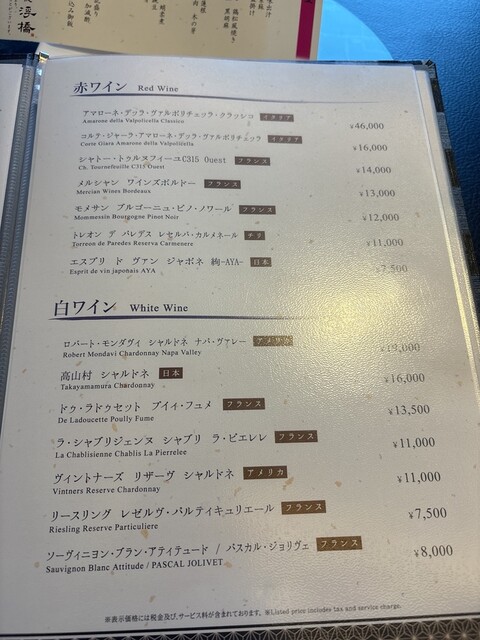 浮橋
赤ワイン Red Wine
アマローネ・デッラ・ヴァルポリチェッラ・クラッシコ イタリア
Amarone della Valpolicella Classico
¥46,000
コルテ・ジャーラ・アマローネ・デッラ・ヴァルポリチェッラ イタリア
Corte Giara Amarone della Valpolicella
¥16,000
シャトー・トゥルヌフィーユC315 Ouest フランス
Ch. Tournefeuille C315 Ouest
¥14,000
メルシャン ワインズボルドー フランス
Mercian Wines Bordeaux
¥13,000
モメサン ブルゴーニュ・ピノ・ノワール フランス
Mommessin Bourgogne Pinot Noir
¥12,000
トレオン デ パレデス レセルバ・カルメネール チリ
Torreon de Paredes Reserva Carmenere
¥11,000
エスプリ ド ヴァン ジャポネ 絢-AYA- 日本
Esprit de vin japonais AYA
¥7,500
白ワイン White Wine
ロバート・モンダヴィ シャルドネ ナパ・ヴァレー アメリカ
Robert Mondavi Chardonnay Napa Valley
高山村 シャルドネ 日本
Takayamamura Chardonnay
¥16,000
ドゥ・ラドゥセット プイィ・フュメ フランス
De Ladoucette Poully Fume
¥13,500
ラ・シャブリジェンヌ シャブリ ラ・ピエレレ フランス
La Chablisienne Chablis La Pierrelee
¥11,000
ヴィントナーズ リザーヴ シャルドネ アメリカ
Vintners Reserve Chardonnay
¥11,000
リースリング レゼルヴ・パルティキュリエール フランス
Riesling Reserve Particuliere
¥7,500
ソーヴィニヨン・ブラン・アティテュード / パスカル・ジョリヴェ フランス
Sauvignon Blanc Attitude / PASCAL JOLIVET
¥8,000
※表示価格には税金及び、サービス料が含まれております。 ※Listed price includes tax and service charge.